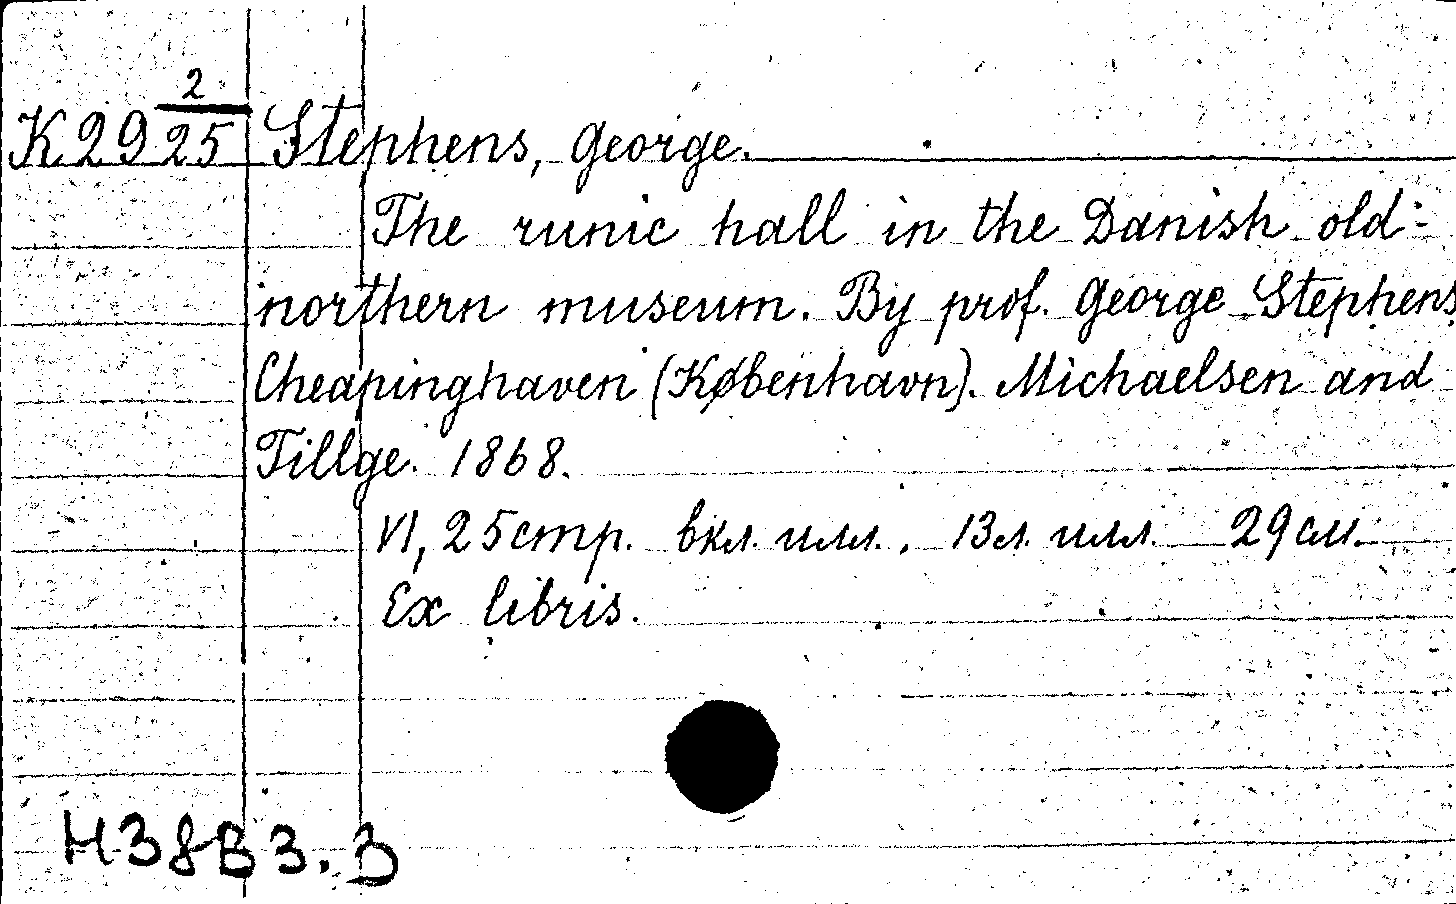 K29 2/25 Stephens, George.
The runic hall in the Danish old-
northern museum. By prof. George Stephens
Cheapinghaven (København). Michaelsen and
Tillge. 1868.
VI, 25 стр. вкл. илл., 13 л. илл. 29 см.
Ex libris.
H38B3.3